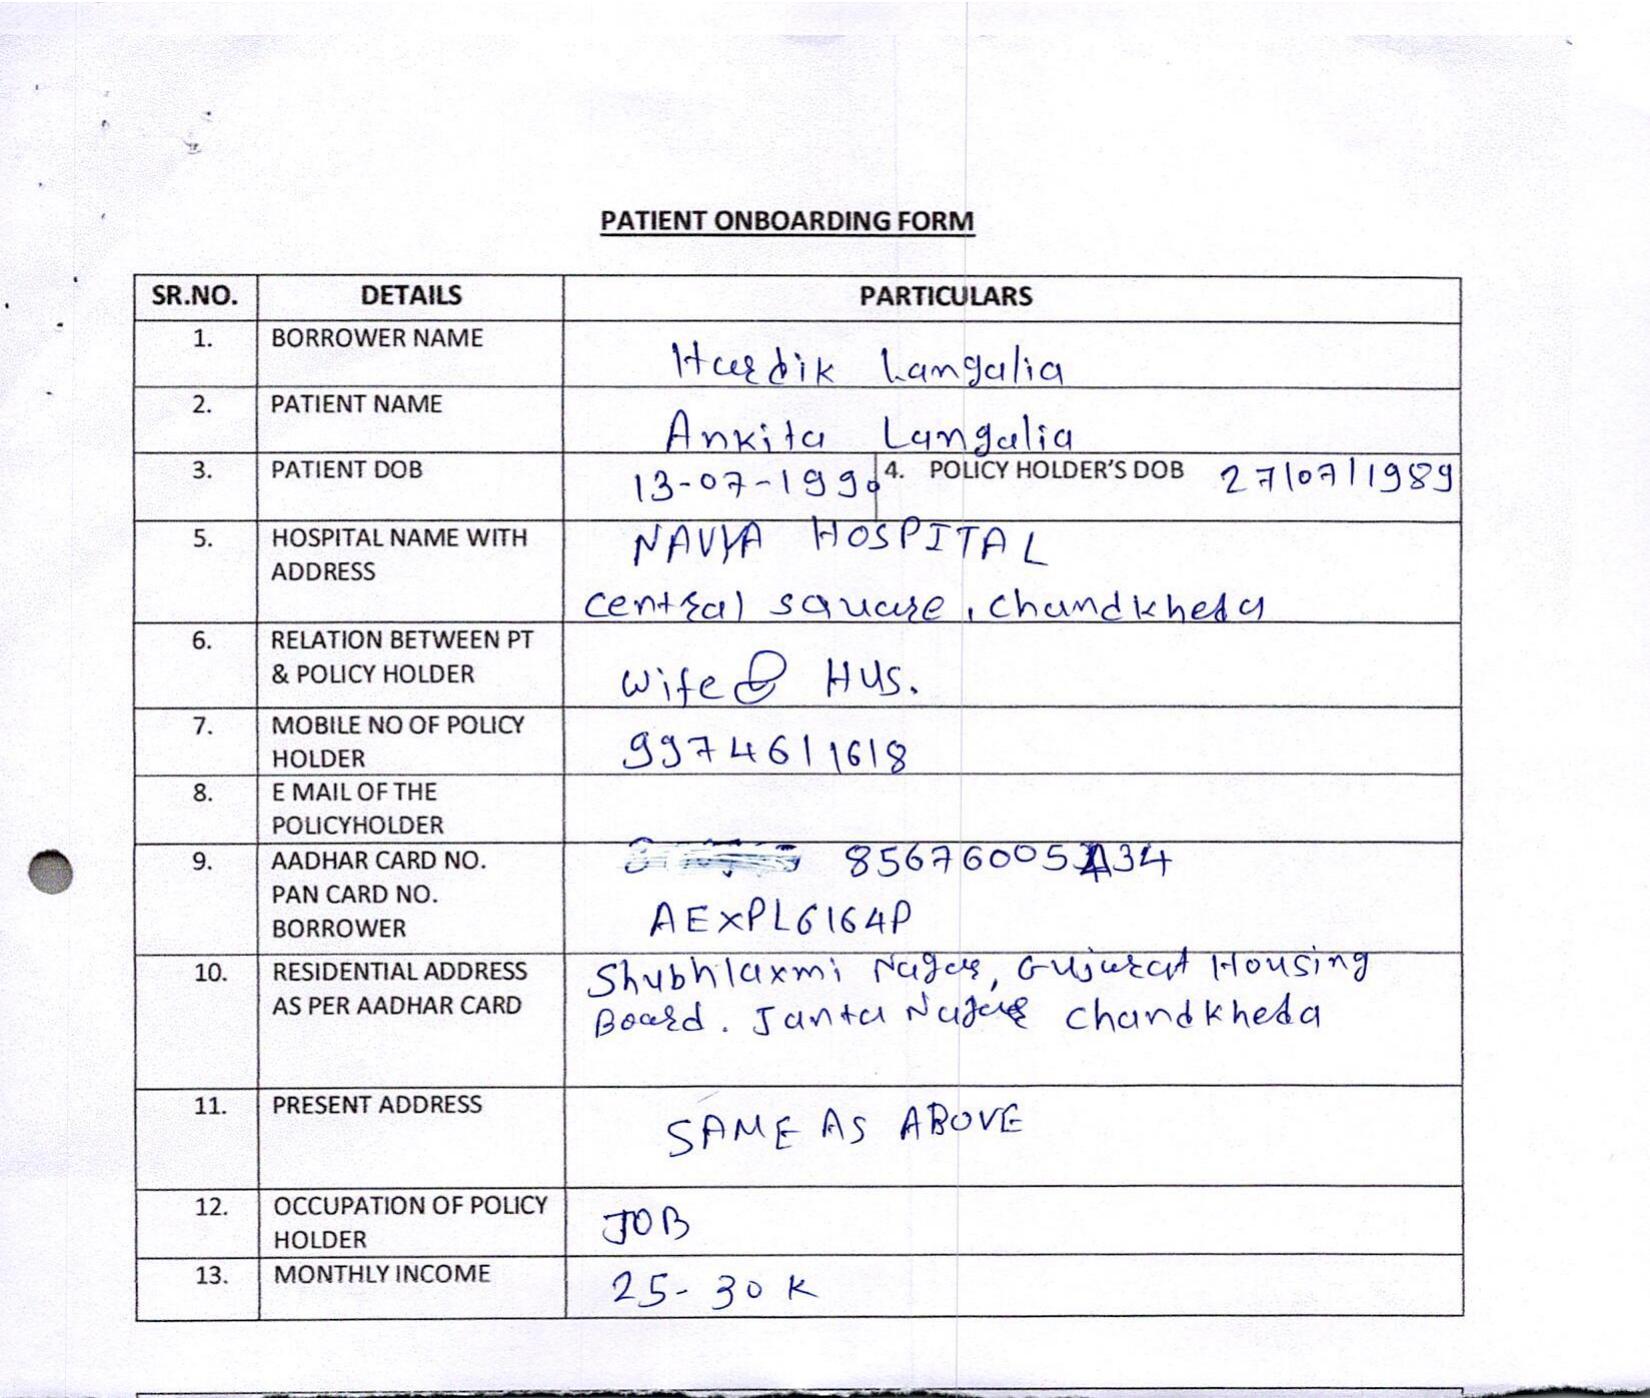 PATIENT ONBOARDING FORM
SR.NO. DETAILS PARTICULARS
1. BORROWER NAME Hardik Langalia
2. PATIENT NAME Ankita Langalia
3. PATIENT DOB 13-07-1990 4. POLICY HOLDER'S DOB 27/07/1989
5. HOSPITAL NAME WITH NAVYA HOSPITAL
ADDRESS central square, chandkheda
6. RELATION BETWEEN PT
& POLICY HOLDER wife & Hus.
7. MOBILE NO OF POLICY
HOLDER 9974611618
8. E MAIL OF THE
POLICYHOLDER
9. AADHAR CARD NO.
PAN CARD NO. AEXPL6164P
BORROWER
10. RESIDENTIAL ADDRESS Shubhlaxmi Nagar, Gujarat Housing
AS PER AADHAR CARD Board. Janta Nagar chandkheda
11. PRESENT ADDRESS SAME AS ABOVE
12. OCCUPATION OF POLICY
HOLDER JOB
13. MONTHLY INCOME 25-30 K